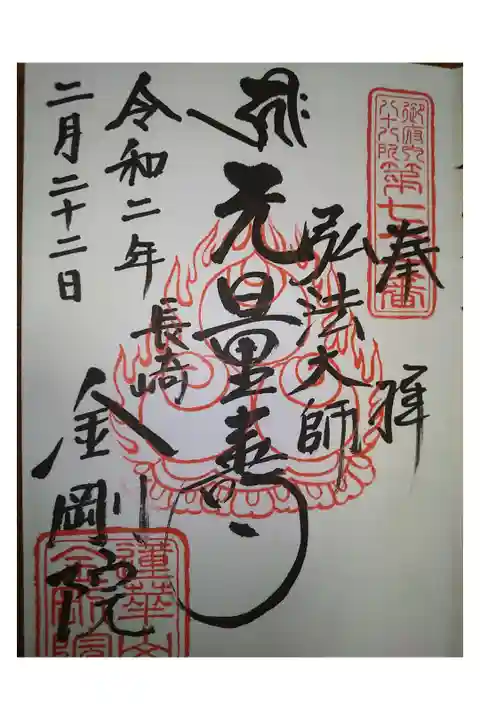 奉拝
弘法大師
无量寿
長崎
令和二年
二月二十二日
金剛院
御府内
八十八ヶ所
第七十六番
蓮華山
金剛院